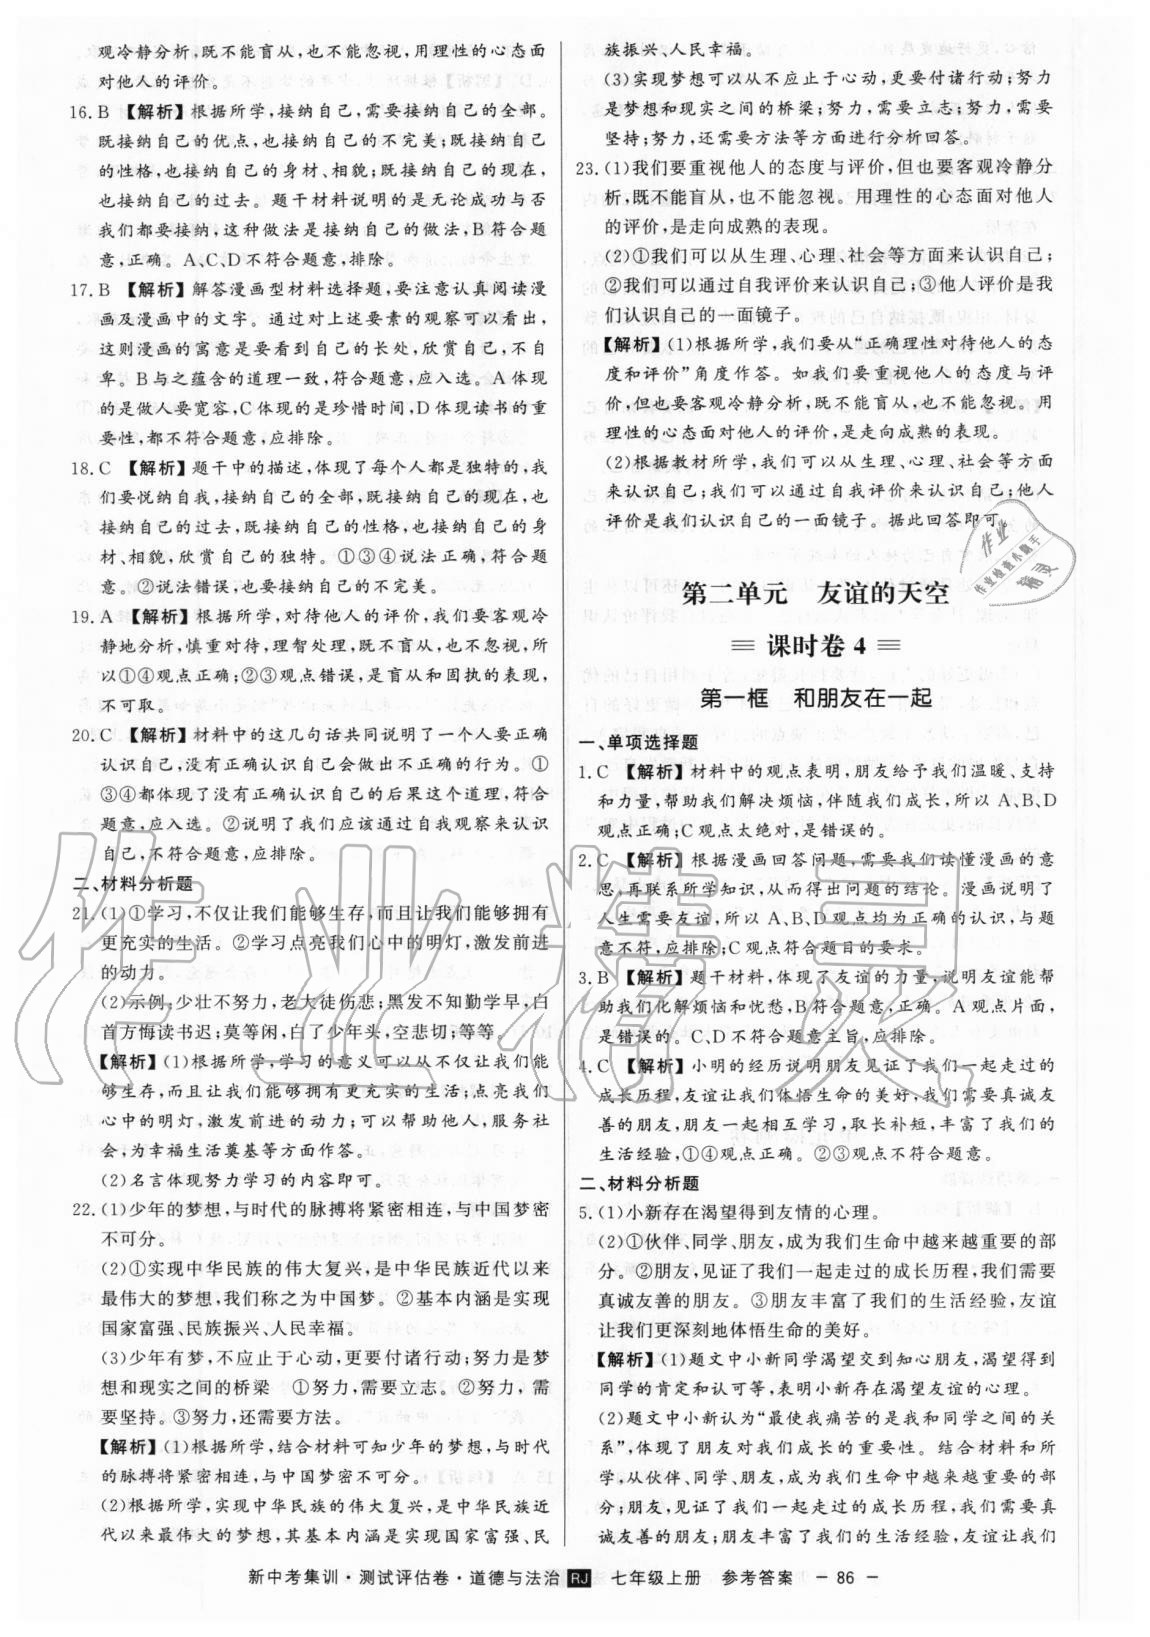 观冷静分析,既不能盲从,也不能忽视,用理性的心态面
对他人的评价。
16. B 【解析】根据所学,接纳自己,需要接纳自己的全部。
既接纳自己的优点,也接纳自己的不完美;既接纳自己
的性格,也接纳自己的身材、相貌;既接纳自己的现在,
也接纳自己的过去。题干材料说明的是无论成功与否
我们都要接纳,这种做法是接纳自己的做法,B 符合题
意,正确。A、C、D 不符合题意,排除。
17. B 【解析】解答漫画型材料选择题,要注意认真阅读漫
画及漫画中的文字。通过对上述要素的观察可以看出,
这则漫画的寓意是要看到自己的长处,欣赏自己,不自
卑。B 与之蕴含的道理一致,符合题意,应入选。A 体现
的是做人要宽容,C 体现的是珍惜时间,D 体现读书的重
要性,都不符合题意,应排除。
18. C 【解析】题干中的描述,体现了每个人都是独特的,我
们要悦纳自我,接纳自己的全部,既接纳自己的现在,也
接纳自己的过去,既接纳自己的性格,也接纳自己的身
材、相貌,欣赏自己的独特。①③④说法正确,符合题
意。②说法错误,也要接纳自己的不完美。
19. A 【解析】根据所学,对待他人的评价,我们要客观冷
静地分析,慎重对待,理智处理,既不盲从,也不忽视,所
以①④观点正确;②③观点错误,是盲从和固执的表现,
不可取。
20. C 【解析】材料中的这几句话共同说明了一个人要正确
认识自己,没有正确认识自己会做出不正确的行为。①
③④都体现了没有正确认识自己的后果这个道理,符合
题意,应入选。②说明了我们应该通过自我观察来认识
自己,不符合题意,应排除。
二、材料分析题
21. (1)①学习,不仅让我们能够生存,而且让我们能够拥有
更充实的生活。②学习点亮我们心中的明灯,激发前进
的动力。
(2)示例:少壮不努力,老大徒伤悲;黑发不知勤学早,白
首方悔读书迟;莫等闲,白了少年头,空悲切;等等。
【解析】(1)根据所学,学习的意义可以从不仅让我们能
够生存,而且让我们能够拥有更充实的生活;点亮我们
心中的明灯,激发前进的动力;可以帮助他人,服务社
会,为幸福生活奠基等方面作答。
(2)名言体现努力学习的内容即可。
22. (1)少年的梦想,与时代的脉搏将紧密相连,与中国梦密
不可分。
(2)①实现中华民族的伟大复兴,是中华民族近代以来
最伟大的梦想,我们称之为中国梦。②基本内涵是实现
国家富强、民族振兴、人民幸福。
(3)少年有梦,不应止于心动,更要付诸行动;努力是梦
想和现实之间的桥梁 ①努力,需要立志。②努力,需
要坚持。③努力,还需要方法。
【解析】(1)根据所学,结合材料可知少年的梦想,与时代
的脉搏将紧密相连,与中国梦密不可分。
(2)根据所学,实现中华民族的伟大复兴,是中华民族近
代以来最伟大的梦想,其基本内涵是实现国家富强、民
族振兴、人民幸福。
(3)实现梦想可以从不应止于心动,更要付诸行动;努力
是梦想和现实之间的桥梁;努力,需要立志;努力,需要
坚持;努力,还需要方法等方面进行分析回答。
23. (1)我们要重视他人的态度与评价,但也要客观冷静分
析,既不能盲从,也不能忽视。用理性的心态面对他人
的评价,是走向成熟的表现。
(2)①我们可以从生理、心理、社会等方面来认识自己;
②我们可以通过自我评价来认识自己;③他人评价是我
们认识自己的一面镜子。
【解析】(1)根据所学,我们要从“正确理性对待他人的态
度和评价”角度作答。如我们要重视他人的态度与评
价,但也要客观冷静分析,既不能盲从,也不能忽视。用
理性的心态面对他人的评价,是走向成熟的表现。
(2)根据教材所学,我们可以从生理、心理、社会等方面
来认识自己;我们可以通过自我评价来认识自己;他人
评价是我们认识自己的一面镜子。据此回答即可。
第二单元 友谊的天空
课时卷 4
第一框 和朋友在一起
一、单项选择题
1. C 【解析】材料中的观点表明,朋友给予我们温暖、支持
和力量,帮助我们解决烦恼,伴随我们成长,所以 A、B、D
观点正确;C 观点太绝对,是错误的。
2. C 【解析】根据漫画回答问题,需要我们读懂漫画的意
思,再联系所学知识,从而得出问题的结论。漫画说明了
人生需要友谊,所以 A、B、D 观点均为正确的认识,与题
意不符,应排除;C 观点符合题目的要求。
3. B 【解析】题干材料,体现了友谊的力量,说明友谊能帮
助我们化解烦恼和忧愁,B 符合题意,正确。A 观点片面,
是错误的。C、D 不符合题意主旨,应排除。
4. C 【解析】小明的经历说明朋友见证了我们一起走过的
成长历程,友谊让我们体悟生命的美好,我们需要真诚友
善的朋友,朋友一起相互学习,取长补短,丰富了我们的
生活经验,①④观点正确,②③观点不符合题意。
二、材料分析题
5. (1)小新存在渴望得到友情的心理。
(2)①伙伴、同学、朋友,成为我们生命中越来越重要的部
分。②朋友,见证了我们一起走过的成长历程,我们需要
真诚友善的朋友。③朋友丰富了我们的生活经验,友谊
让我们更深刻地体悟生命的美好。
【解析】(1)题文中小新同学渴望交到知心朋友,渴望得到
同学的肯定和认可等,表明小新存在渴望友谊的心理。
(2)题文中小新认为“最使我痛苦的是我和同学之间的关
系”,体现了朋友对我们成长的重要性。结合材料和所
学,从伙伴、同学、朋友,成为我们生命中越来越重要的部
分;朋友,见证了我们一起走过的成长历程,我们需要真
诚友善的朋友;朋友丰富了我们的生活经验,友谊让我们
新中考集训·测试评估卷·道德与法治 RJ 七年级上册 参考答案 — 86 —
作业精灵
作业
作业检查小助手
精灵